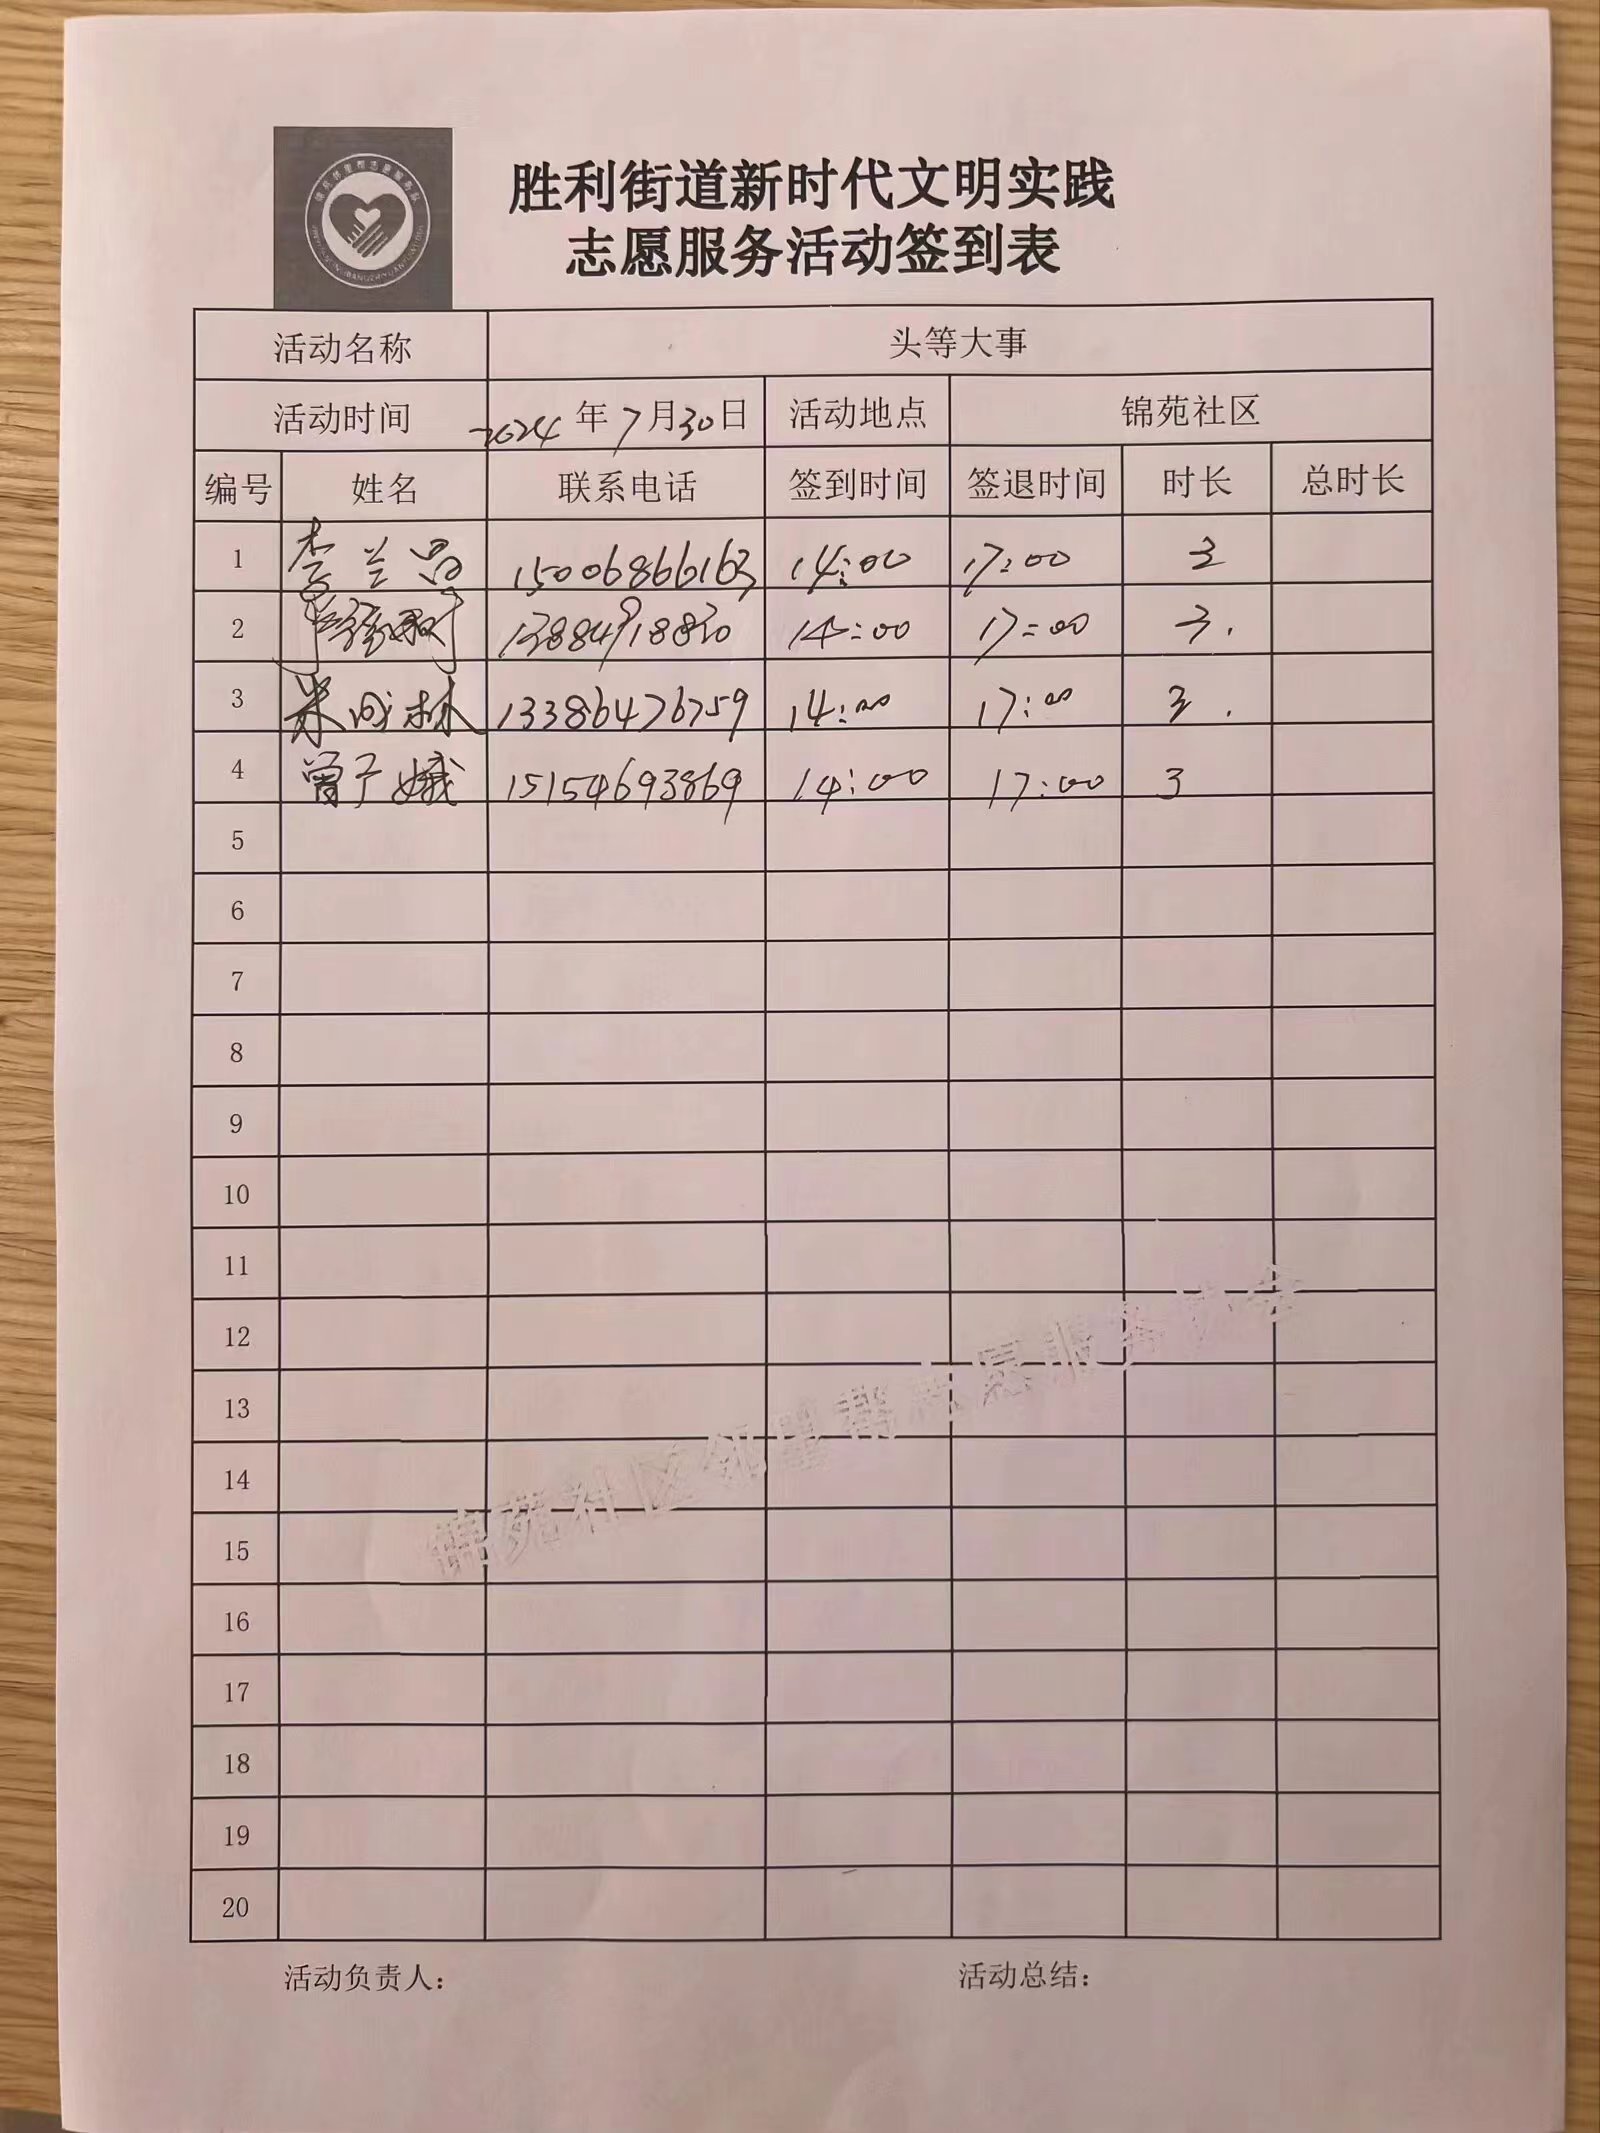 胜利街道新时代文明实践
志愿服务活动签到表
活动名称 头等大事
活动时间 2024年7月30日 活动地点 锦苑社区
编号 姓名 联系电话 签到时间 签退时间 时长 总时长
1 李兰昌 15006866163 14:00 17:00 3
2 13884918830 14:00 17:00 3.
3 米成林 13386476759 14:00 17:00 3.
4 曾子娥 15154693869 14:00 17:00 3
5
6
7
8
9
10
11
12
13
14
15
16
17
18
19
20
锦苑社区邻里帮志愿服务协会
活动负责人：
活动总结：